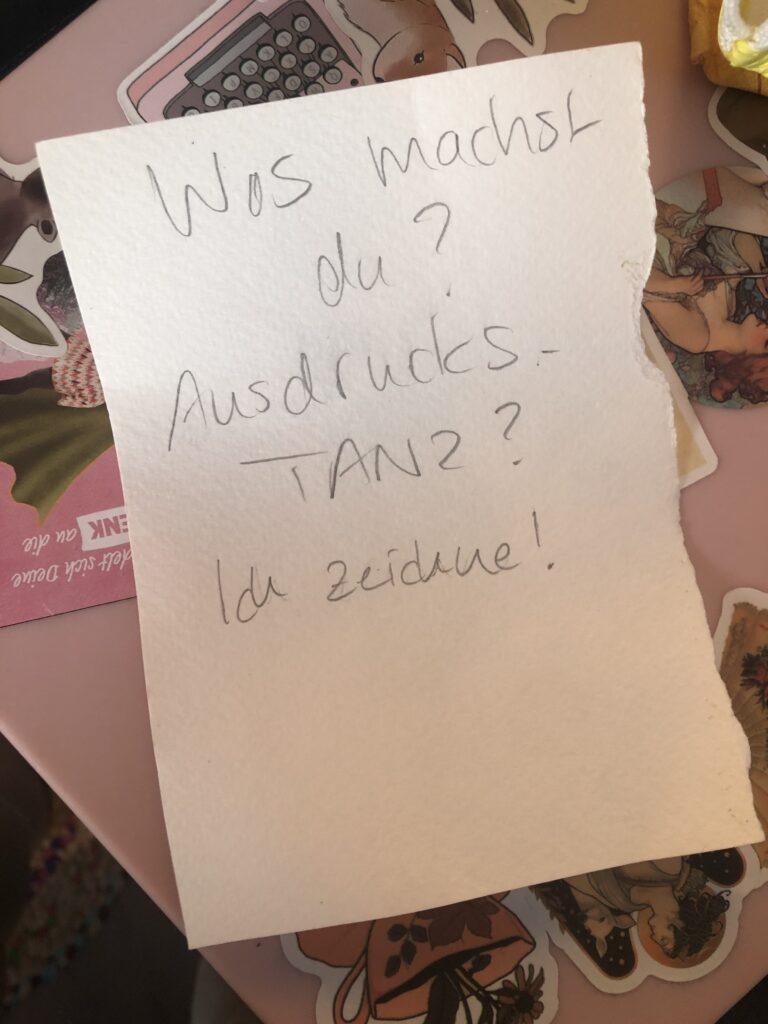 Was machst
du?
Ausdrucks-
TANZ?
Ich zeichne!
delt sich Deine
ENK an die